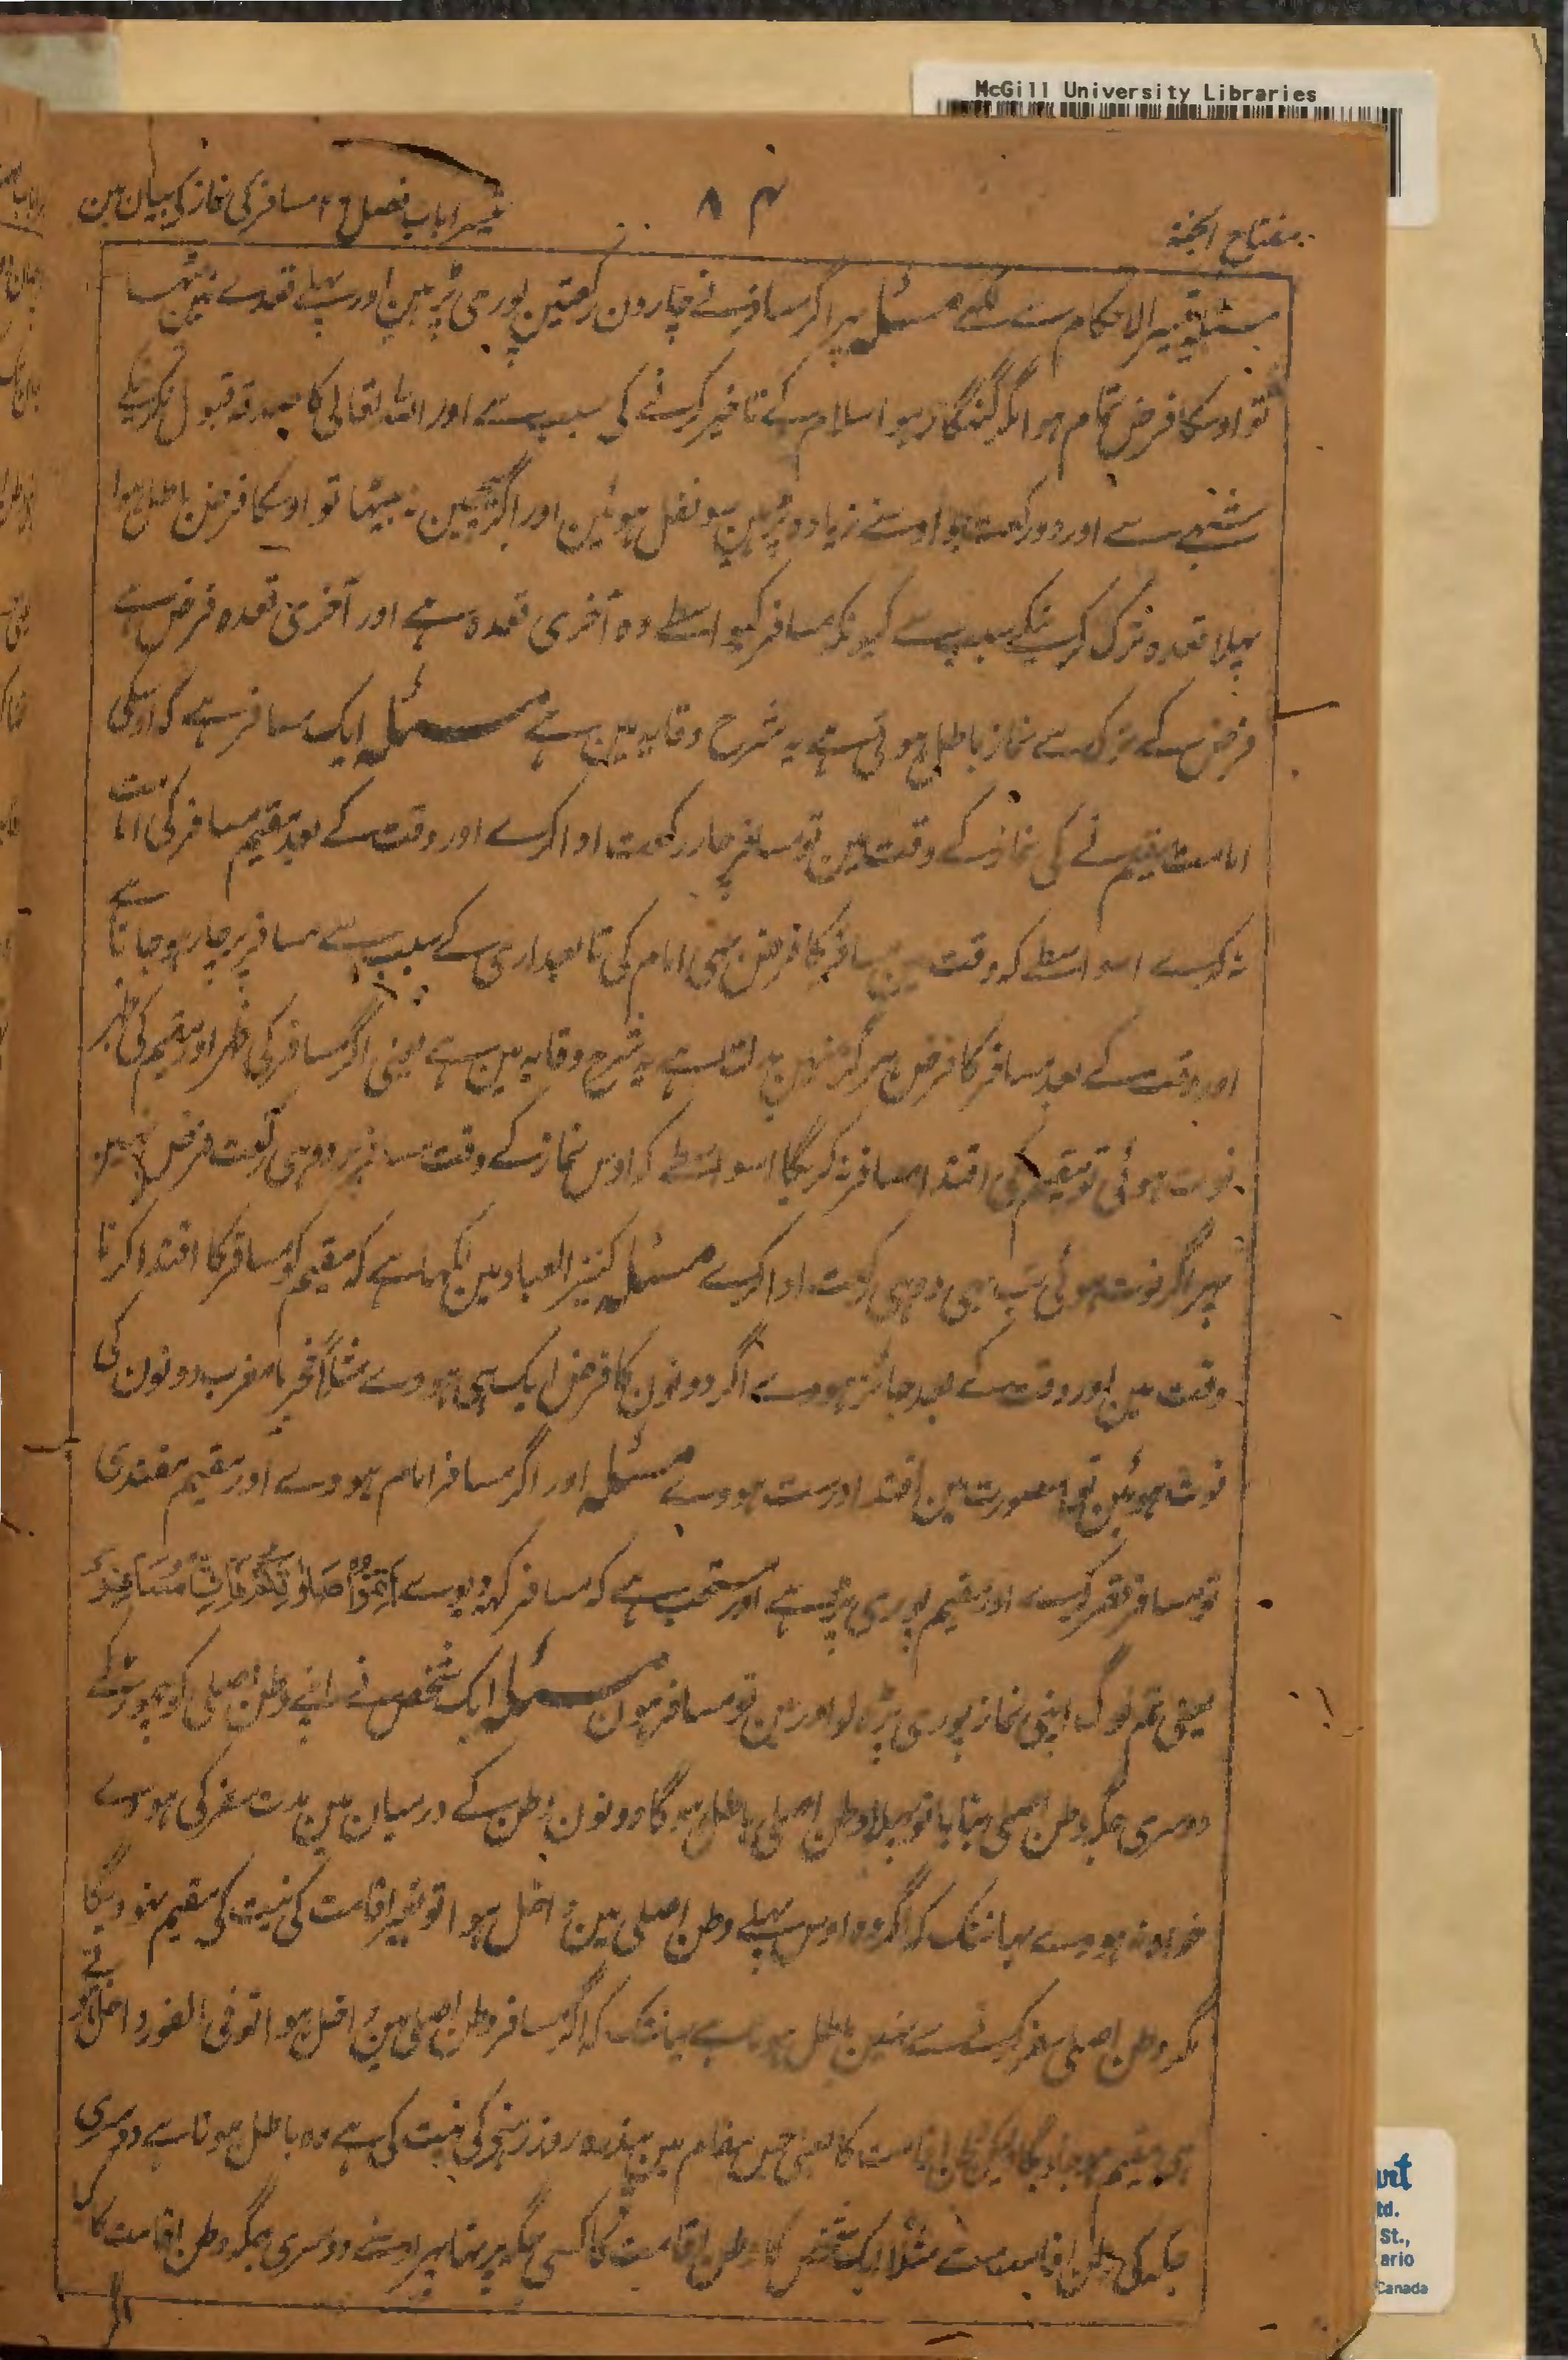 McGill University Libraries
مفتاح الجنة
۸۴
تیسرا باب فصل ۴ مسافر کی نماز کی بیان مین
الاحکام سے مسئلہ پر اگر مسافر نے چارون رکعتین پوری پڑہین اور پہلے قعدے مین بیٹھا
تو اوسکا فرض تمام ہوا مگر گنہگار ہوا سلام کے تاخیر کرنے کی سبب سے اور اللہ تعالی کا صدقہ قبول نکرنیکے
سے اور دو رکعت جو اوسنے زیادہ پڑہین سو نفل ہوئین اور اگر نہ بیٹھا تو اوسکا فرض باطل ہوا
پہلا قعدہ ترک کرنیکے سبب سے کیونکہ مسافر کیواسطے وہ آخری قعدہ ہے اور آخری قعدہ فرض ہے
فرض کے ترک سے نماز باطل ہوتی ہے یہ شرح وقایہ مین ہے مسئلہ ایک مسافر ہے کہ اوسکی
امامت مقیم نے کی نماز کے وقت مین تو مسافر چار رکعت ادا کرے اور وقت کے بعد مقیم مسافر کی امامت
نہ کرے اسواسطے کہ وقت مین مسافر کا فرض بھی امام کی تابعداری کے سبب سے مسافر پر چار ہو جاتا ہے
اور وقت کے بعد مسافر کا فرض ہرگز نہین بدلتا ہے یہ شرح وقایہ مین ہے یعنی اگر مسافر کی ظہر اور مقیم کی ظہر
فوت ہوئی تو مقیم کی اقتدا مسافر نہ کریگا اسواسطے کہ اوس نماز کے وقت مسافر پر دو ہی رکعت فرض تہین
پھر اگر فوت ہوئی تب بھی دو ہی رکعت ادا کرے مسئلہ کنیز العباد مین لکھا ہے کہ مقیم کو مسافر کا اقتدا کرنا
وقت مین اور وقت کے بعد جائز ہووے اگر دونون کا فرض ایک ہی ہووے مثلاً فجر یا مغرب دونون کی
فوت ہوئین تو اس صورت مین اقتدا درست ہووے مسئلہ اور اگر مسافر امام ہووے اور مقیم مقتدی
تو مسافر قصر کرے اور مقیم پوری پڑہے اور مستحب ہے کہ مسافر کہہ دیوے اَتِمُّوْا صَلٰوتَكُمْ فَاِنِّیْ مُسَافِرٌ
یعنی تم لوگ اپنی نماز پوری پڑہ لو اور مین تو مسافر ہون مسئلہ ایک شخص نے اپنے وطن اصلی کو چھوڑ کے
دوسری جگہ وطن اصلی بنایا تو پہلا وطن اصلی باطل ہوگا دونون وطن کے درمیان مین مدت سفر کی ہووے
خواہ نہ ہووے یہانتک کہ اگر وہ اوس پہلے وطن اصلی مین داخل ہوا تو بغیر اقامت کی نیت کی مقیم نہوویگا
مگر وطن اصلی سفر کرنے سے نہین باطل ہوتا ہے یہانتک کہ اگر مسافر وطن اصلی مین داخل ہوا تو فی الفور داخل ہوتے
ہی مقیم ہو جاویگا لیکن وطن اقامت کا یعنی جس مقام مین پندرہ روز رہنے کی نیت کی ہے وہ باطل ہوتا ہے دوسری
جگہ کی وطن اقامت سے مثلاً ایک شخص کا وطن اقامت کا کسی جگہ پر تھا پھر اوسنے دوسری جگہ وطن اقامت کا کیا
urt
td.
St.,
ario
Canada